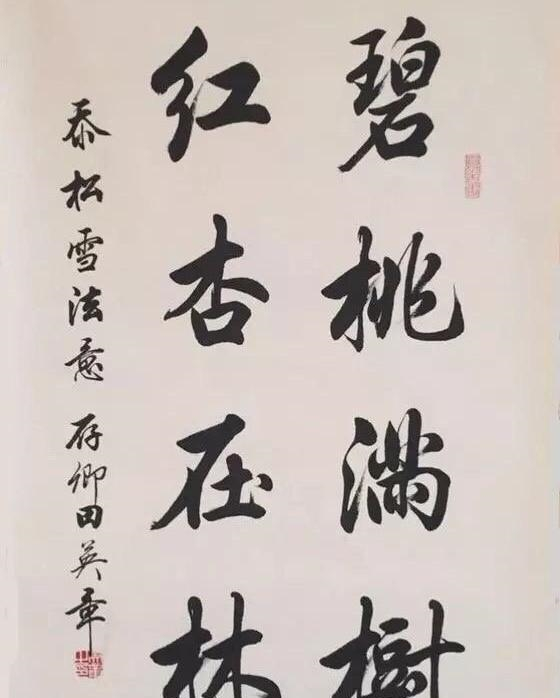 碧桃满樹
红杏在林
恭松雪法意 存卿田英章